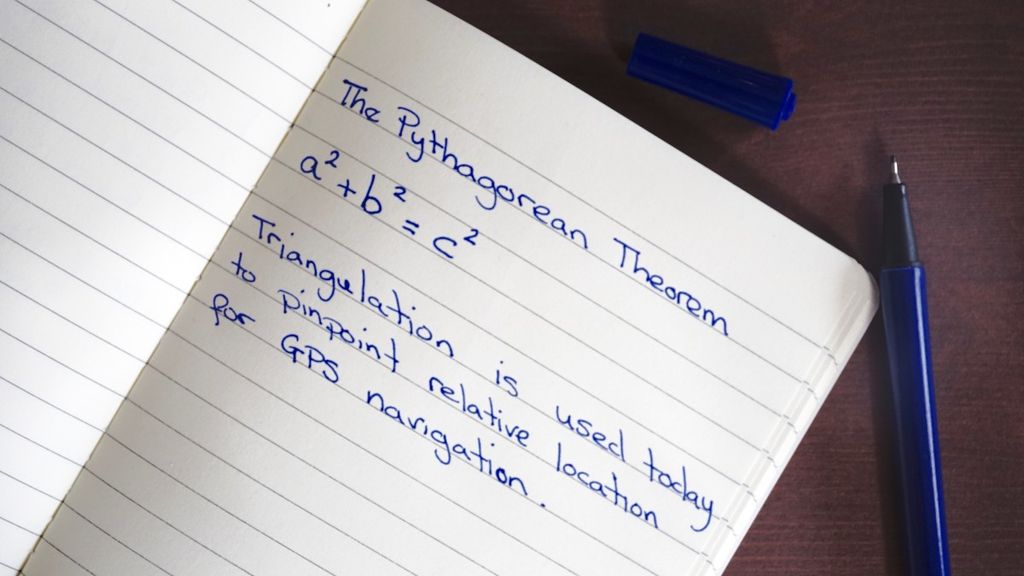 The Pythagorean Theorem
a² + b² = c²
Triangulation is used today
to pinpoint relative location
for GPS navigation.